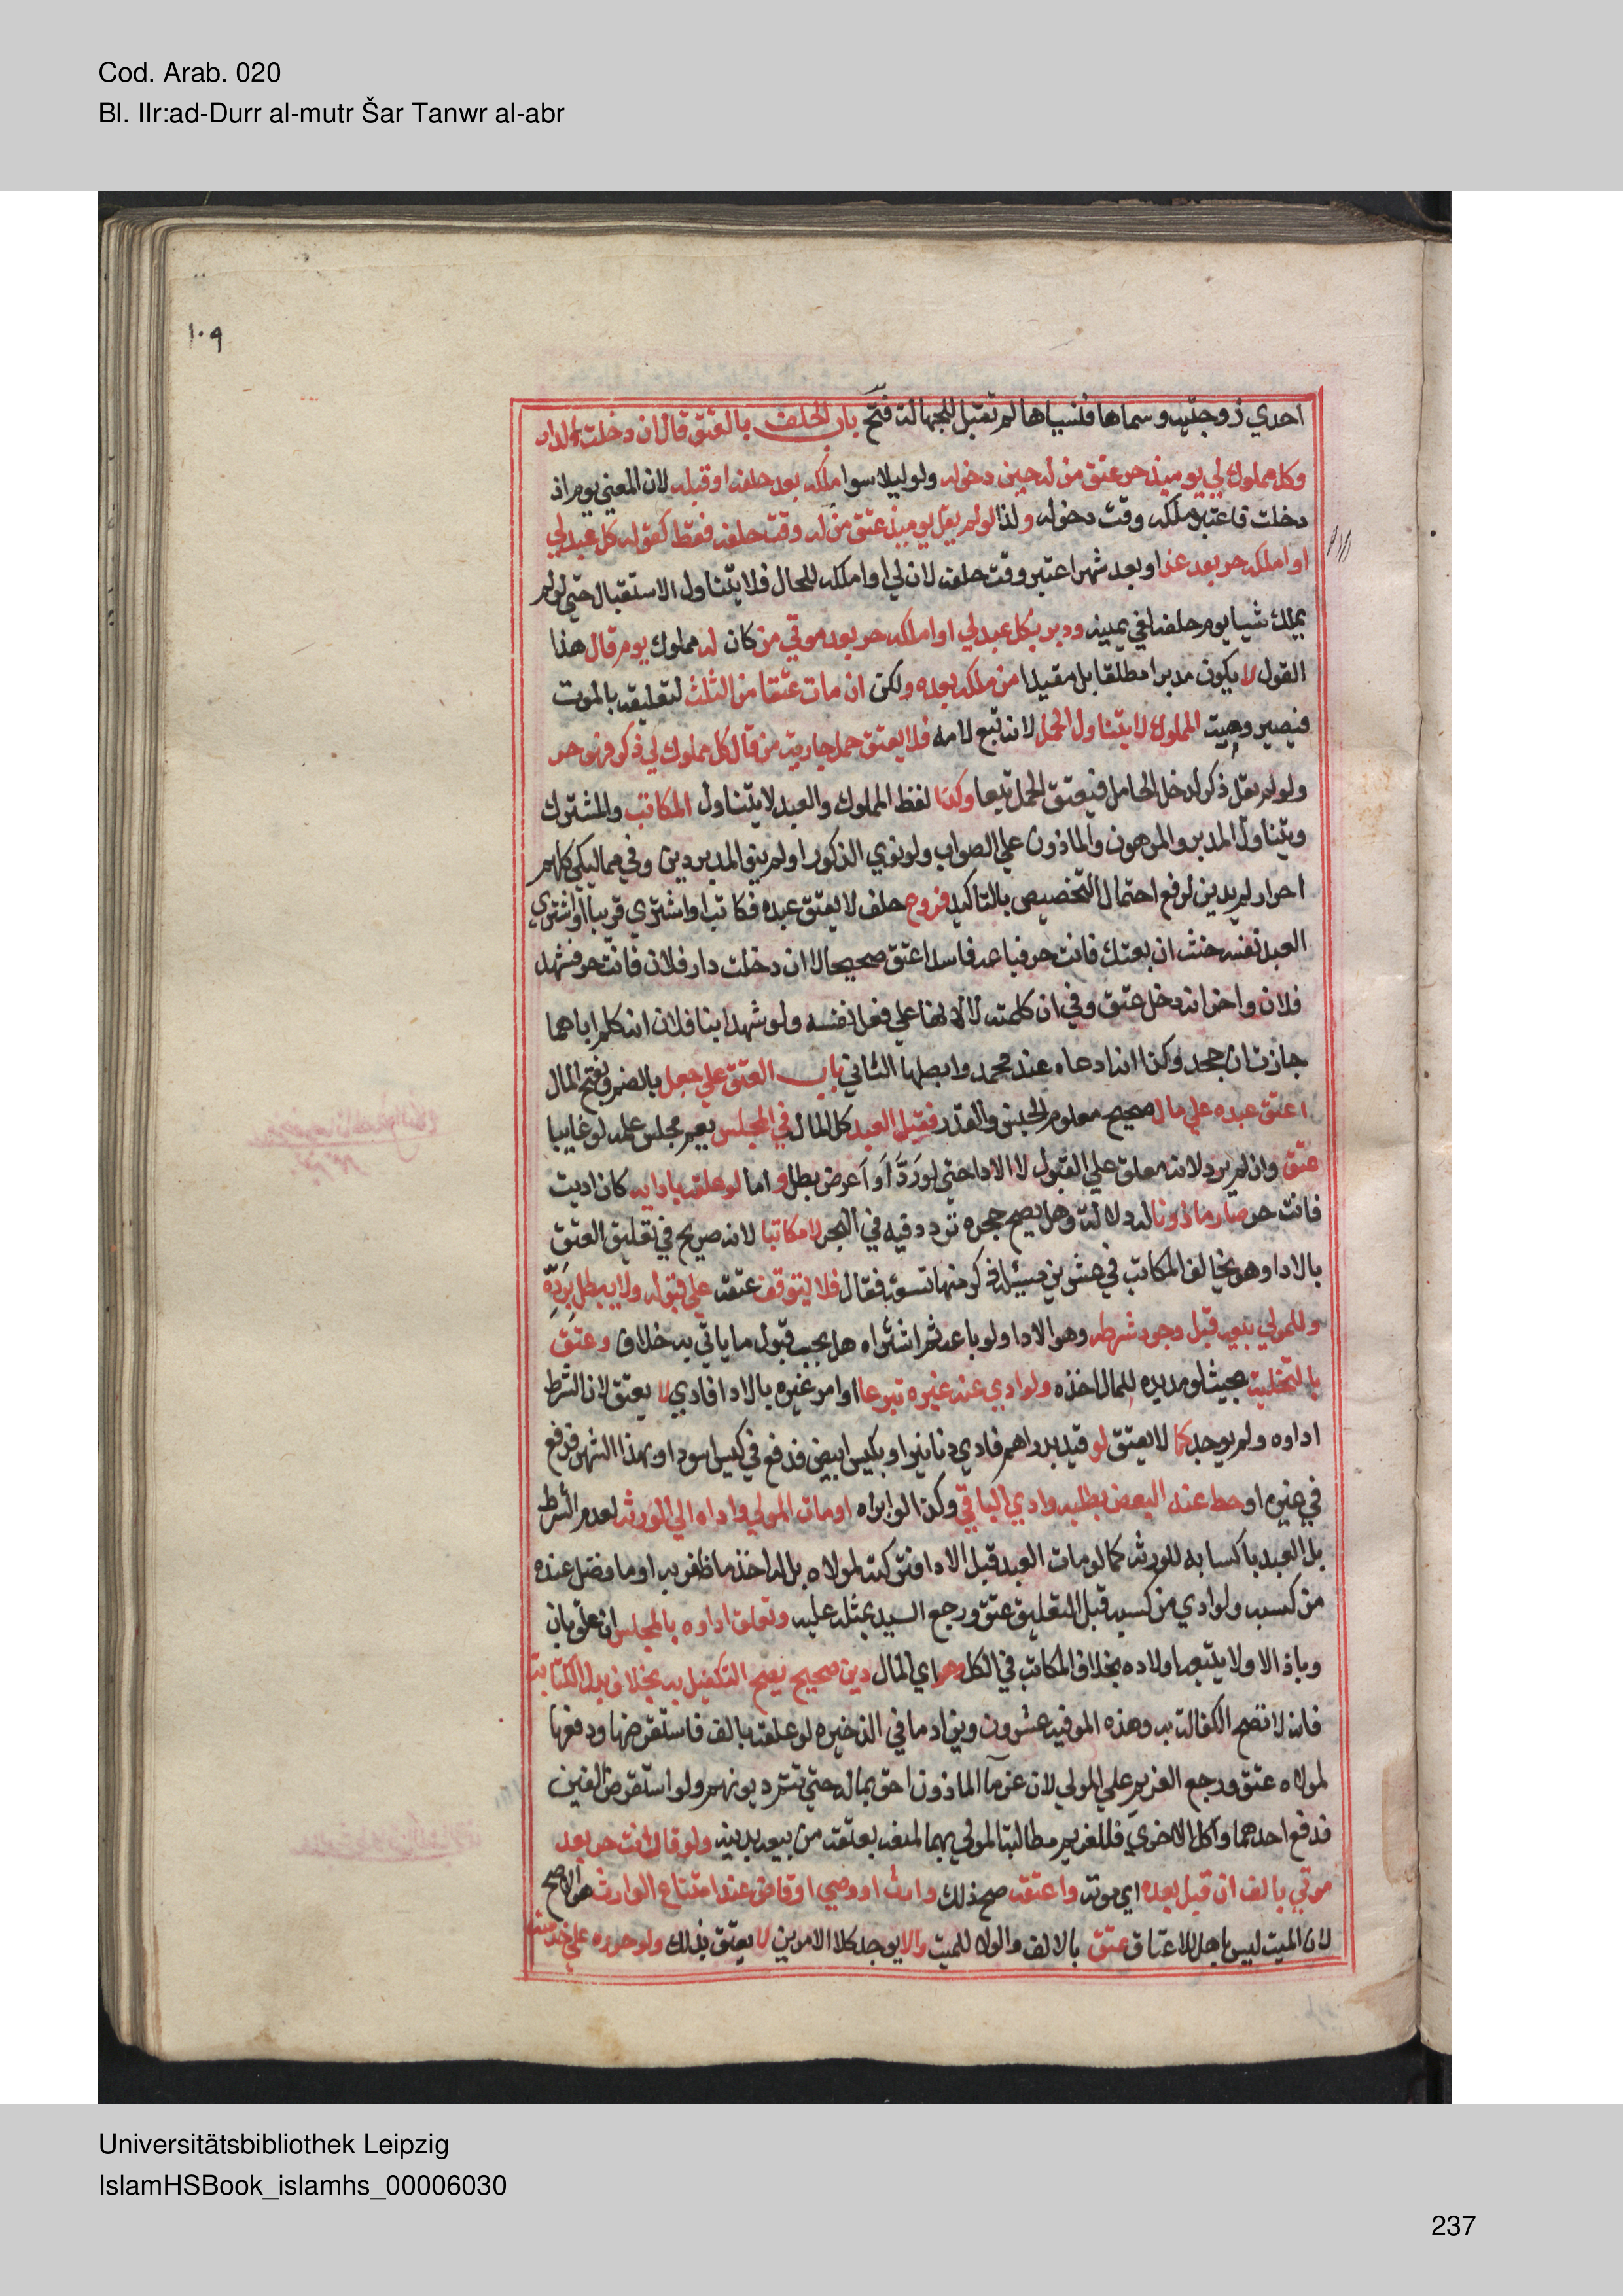 Cod. Arab. 020
Bl. IIr:ad-Durr al-mutr Šar Tanwr al-abr
١٠٩
احدي زوجتيه وسماها فنسياها لم تقبل للجهالة فتح باب الحلف بالعتق قال ان دخلت الدار
وكل مملوك لي يوميذ حر عتق من له حين دخوله ولو ليلا سوا ملكه بعد حلفه او قبله لان المعني يوم اذ
دخلت فاعتبر ملكه وقت دخوله ولذا لو لم يقل يوميذ عتق من له وقت حلفه فقط كقوله كل عبد لي
او املكه حر بعد غد او بعد شهر اعتبر وقت حلفه لان لي او املكه للحال فلا يتناول الاستقبال حتي لو لم
يملك شيا يوم حلفه لغي يمينه ودبر بكل عبد لي او املكه حر بعد موتي من كان له مملوك يوم قال هذا
القول لا يكون مدبرا مطلقا بل مقيدا من ملكه بعده ولكن ان مات عتقا من الثلث لتعليقه بالموت
فيصير وصية المملوك لا يتناول الحمل لانه تبع لامه فلا يعتق حمل جارية من قال كل مملوك لي ذكر فهو حر
ولو لم يقل ذكر لدخل الحامل فيعتق الحمل تبعا وكذا لفظ المملوك والعبد لا يتناول المكاتب والمشترك
ويتناول المدبر والمرهون والماذون علي الصواب ولو نوي الذكور او لم ينو المدبر دين وفي مماليكي كلهم
احرار لم يدين لرفع احتمال التخصيص بالتاكيد فروع حلف لا يعتق عبده فكاتب او اشتري قريبا او اشتري
العبد نفسه حنث ان بعتك فانت حر فباعه فاسدا عتق صحيحا لا ان دخلت دار فلان فانت حر فشهد
فلان واخر انه دخل عتق وفي ان كلمته لا لانها علي فعل نفسه ولو شهد ابنا فلان انه كلم اباهما
جازت ان جحد وكذا ان ادعاه عند محمد وابطلها الثاني باب العتق علي جعل بالضم ويفتح المال
اعتق عبده علي مال صحيح معلوم الجنس والقدر فقبل العبد كل المال في المجلس يعم مجلس علمه لو غايبا
عتق وان لم يرد لانه معلق علي القبول لا الادا حتي لو رد او اعرض بطل واما لو علقه بادايه كان اديت
فانت حر صار ماذونا له دلالة وهل يصح حجره تردد فيه في البحر لا مكاتبا لانه صريح في تعليق العتق
بالادا وهو يخالف المكاتب في عشرين مسيلة ذكر منها تسعة فقال فلا يتوقف عتقه علي قبوله ولا يبطل برده
وللمولي بيعه قبل وجود شرطه وهو الادا ولو باعه ثم اشتراه هل يجب قبول ما ياتي به خلاف وعتق
بالتخلية بحيث لو مد يده للمال اخذه ولو ادي عنه غيره تبرعا او امر غيره بالادا فادي لا يعتق لان الشرط
اداوه ولم يوجد كما لا يعتق لو قيد بدراهم فادي دنانير او بكيس ابيض فدفع في كيس اسود او بهذا الشهر فدفع
في غيره او حط عنه البعض بطلبه وادي الباقي وكذا لو ابراه او مات المولي واداه الي الورثة لعدم الشرط
بل العبد باكسابه للورثة كما لو مات العبد قبل الادا فتركته لمولاه بل له اخذ ما ظفر به او ما فضل عنده
من كسبه ولو ادي من كسبه قبل التعليق عتق ورجع السيد بمثله عليه وتعلق اداوه بالمجلس ان علق بان
وباذا لا ولا يتبعه اولاده بخلاف المكاتب في الكل وهو اي المال دين صحيح يصح التكفيل به بخلاف بدل الكتابة
فانه لا تصح الكفالة به وهذه الموفية عشرون ويزاد ما في الذخيره لو علقه بالف فاستقرضها ودفعها
لمولاه عتق ورجع الغريم علي المولي لان غرما الماذون احق بماله حتي تتم ديونهم ولو استقرض الفين
فدفع احدهما واكل الاخري فللغريم مطالبة المولي بهما لمنعه بعتقه من بيعه بدينه ولو قال انت حر بعد
موتي بالف ان قبل بعده اي موته واعتقه صح ذلك وارث او وصي او قاض عند امتناع الوارث هو الاصح
لان الميت ليس باهل للاعتاق عتق بالالف والولا للميت والا يوجد كلا الامرين لا يعتق بذلك ولو حرره علي خدمته
Universitätsbibliothek Leipzig
IslamHSBook_islamhs_00006030
237